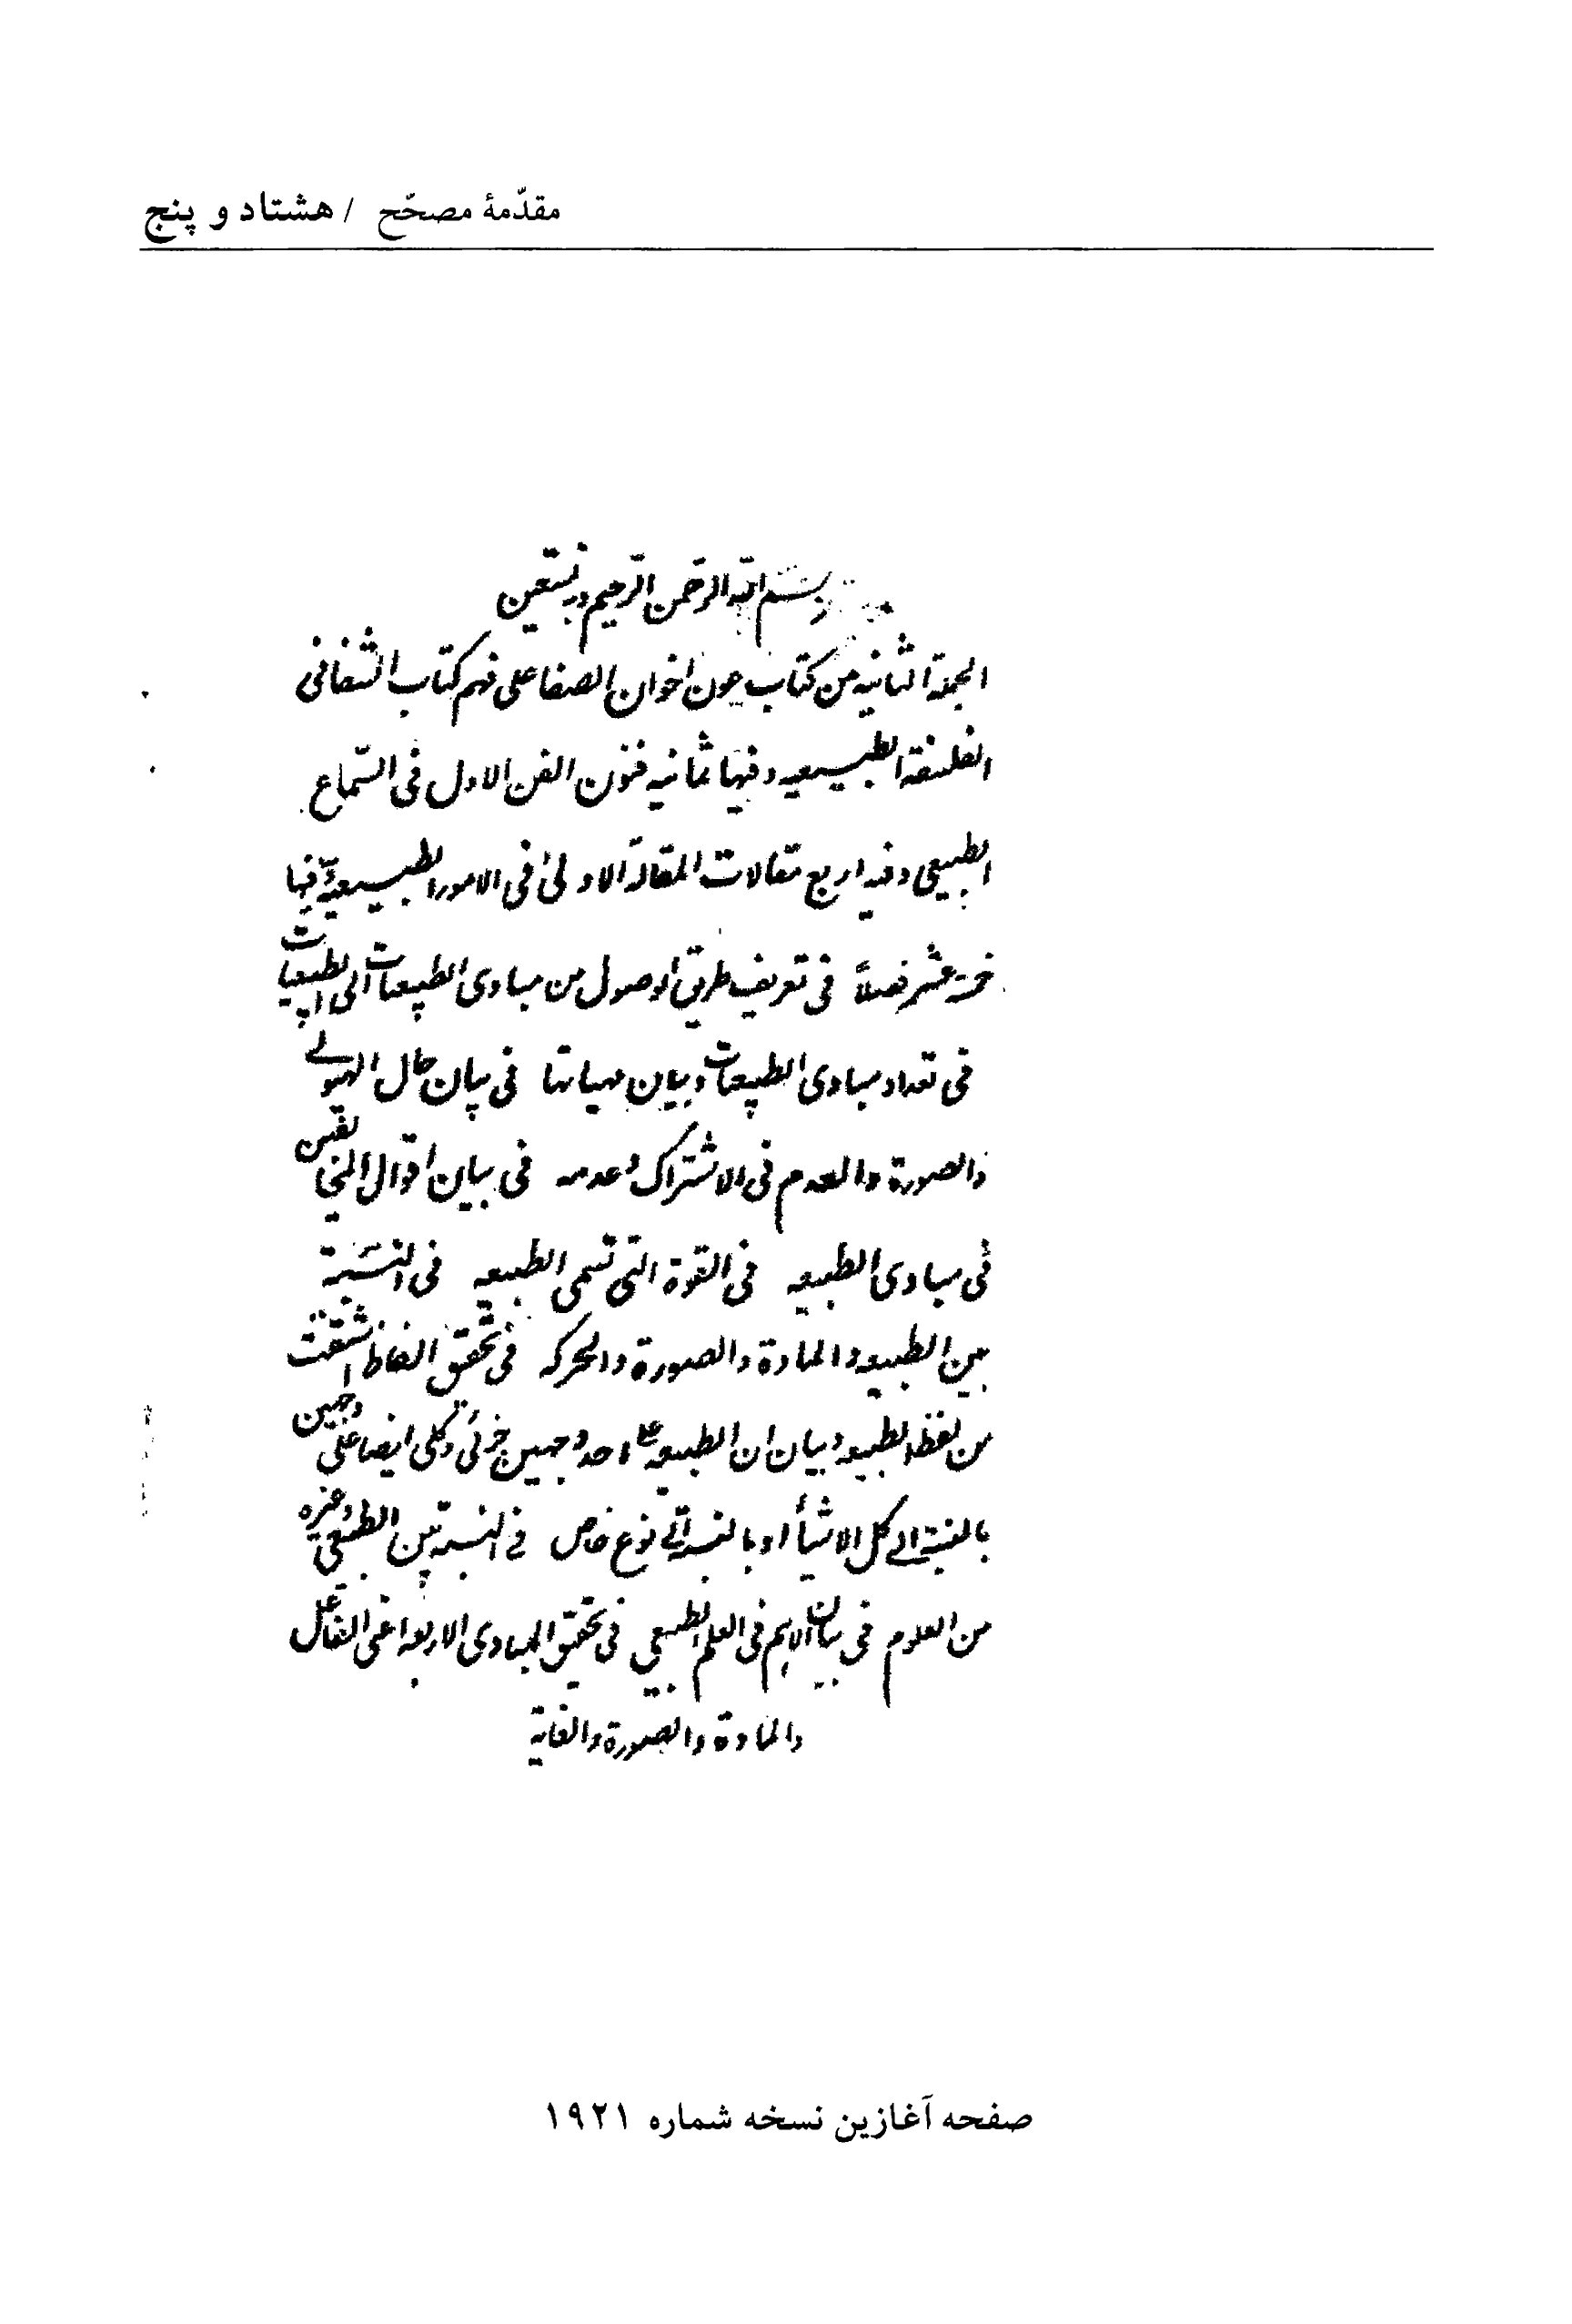 مقدّمهٔ مصحّح / هشتاد و پنج
بسم الله الرحمن الرحيم وبه نستعين
الجملة الثانيه من كتاب عون اخوان الصفا على فهم كتاب الشفا فى
الفلسفة الطبيعيه وفيها ثمانيه فنون الفن الاول فى السّماع
الطبيعى وفيه اربع مقالات المقالة الاولىٰ فى الامور الطبيعية وفيها
خمسة عشر فصلاً فى تعريف طريق الوصول من مبادى الطبيعات الى الطبيعيات
فى تعداد مبادى الطبيعات وبيان مهياتها فى بيان حال الهيولى
والصورة والعدم فى الاشتراك وعدمه فى بيان اقوال المخالفين
فى مبادى الطبيعه فى القوة التى تسمى الطبيعه فى النسبة
بين الطبيعه والمادة والصورة والحركه فى تحقق الفاظ اشتقت
من لفظ الطبيعه وبيان ان الطبيعه على احد وجهين جزئى وكلى ايضا على وجهين
بالنسبة الى كل الاشيأ او بالنسبة الى نوع خاص فى النسبة بين الطبيعى وغيره
من العلوم فى بيان الاهم فى العلم الطبيعى فى تحقيق المبادى الاربعه اعنى الفاعل
والمادة والصورة والغاية
صفحه آغازین نسخه شماره ۱۹۲۱